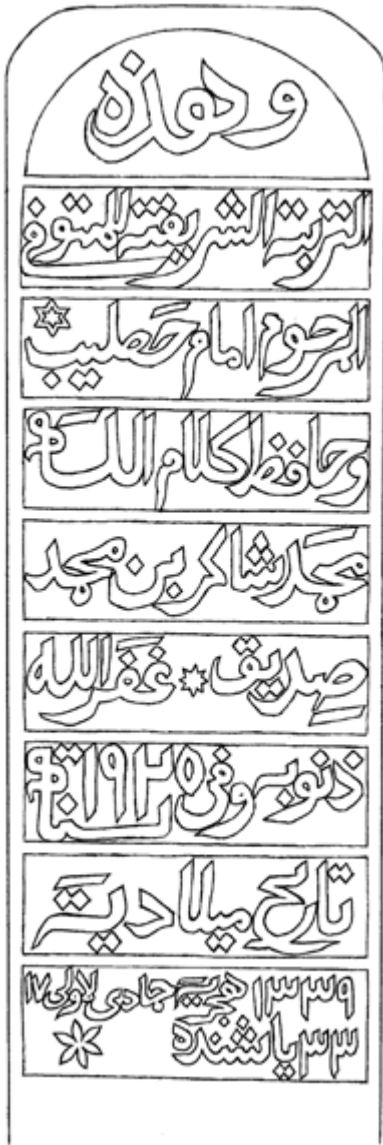 وهذه
التربة الشريفة للمتوفى
المرحوم امام خطيب
وحافظ كلام الله
محمد شاكر بن محمد
صديق غفر الله
ذنوبه وفى ١٩٢٥
تايخ ميلادية
١٣٣٩ هجرية جادى لاولى ١٧
٣٣ ياشنده